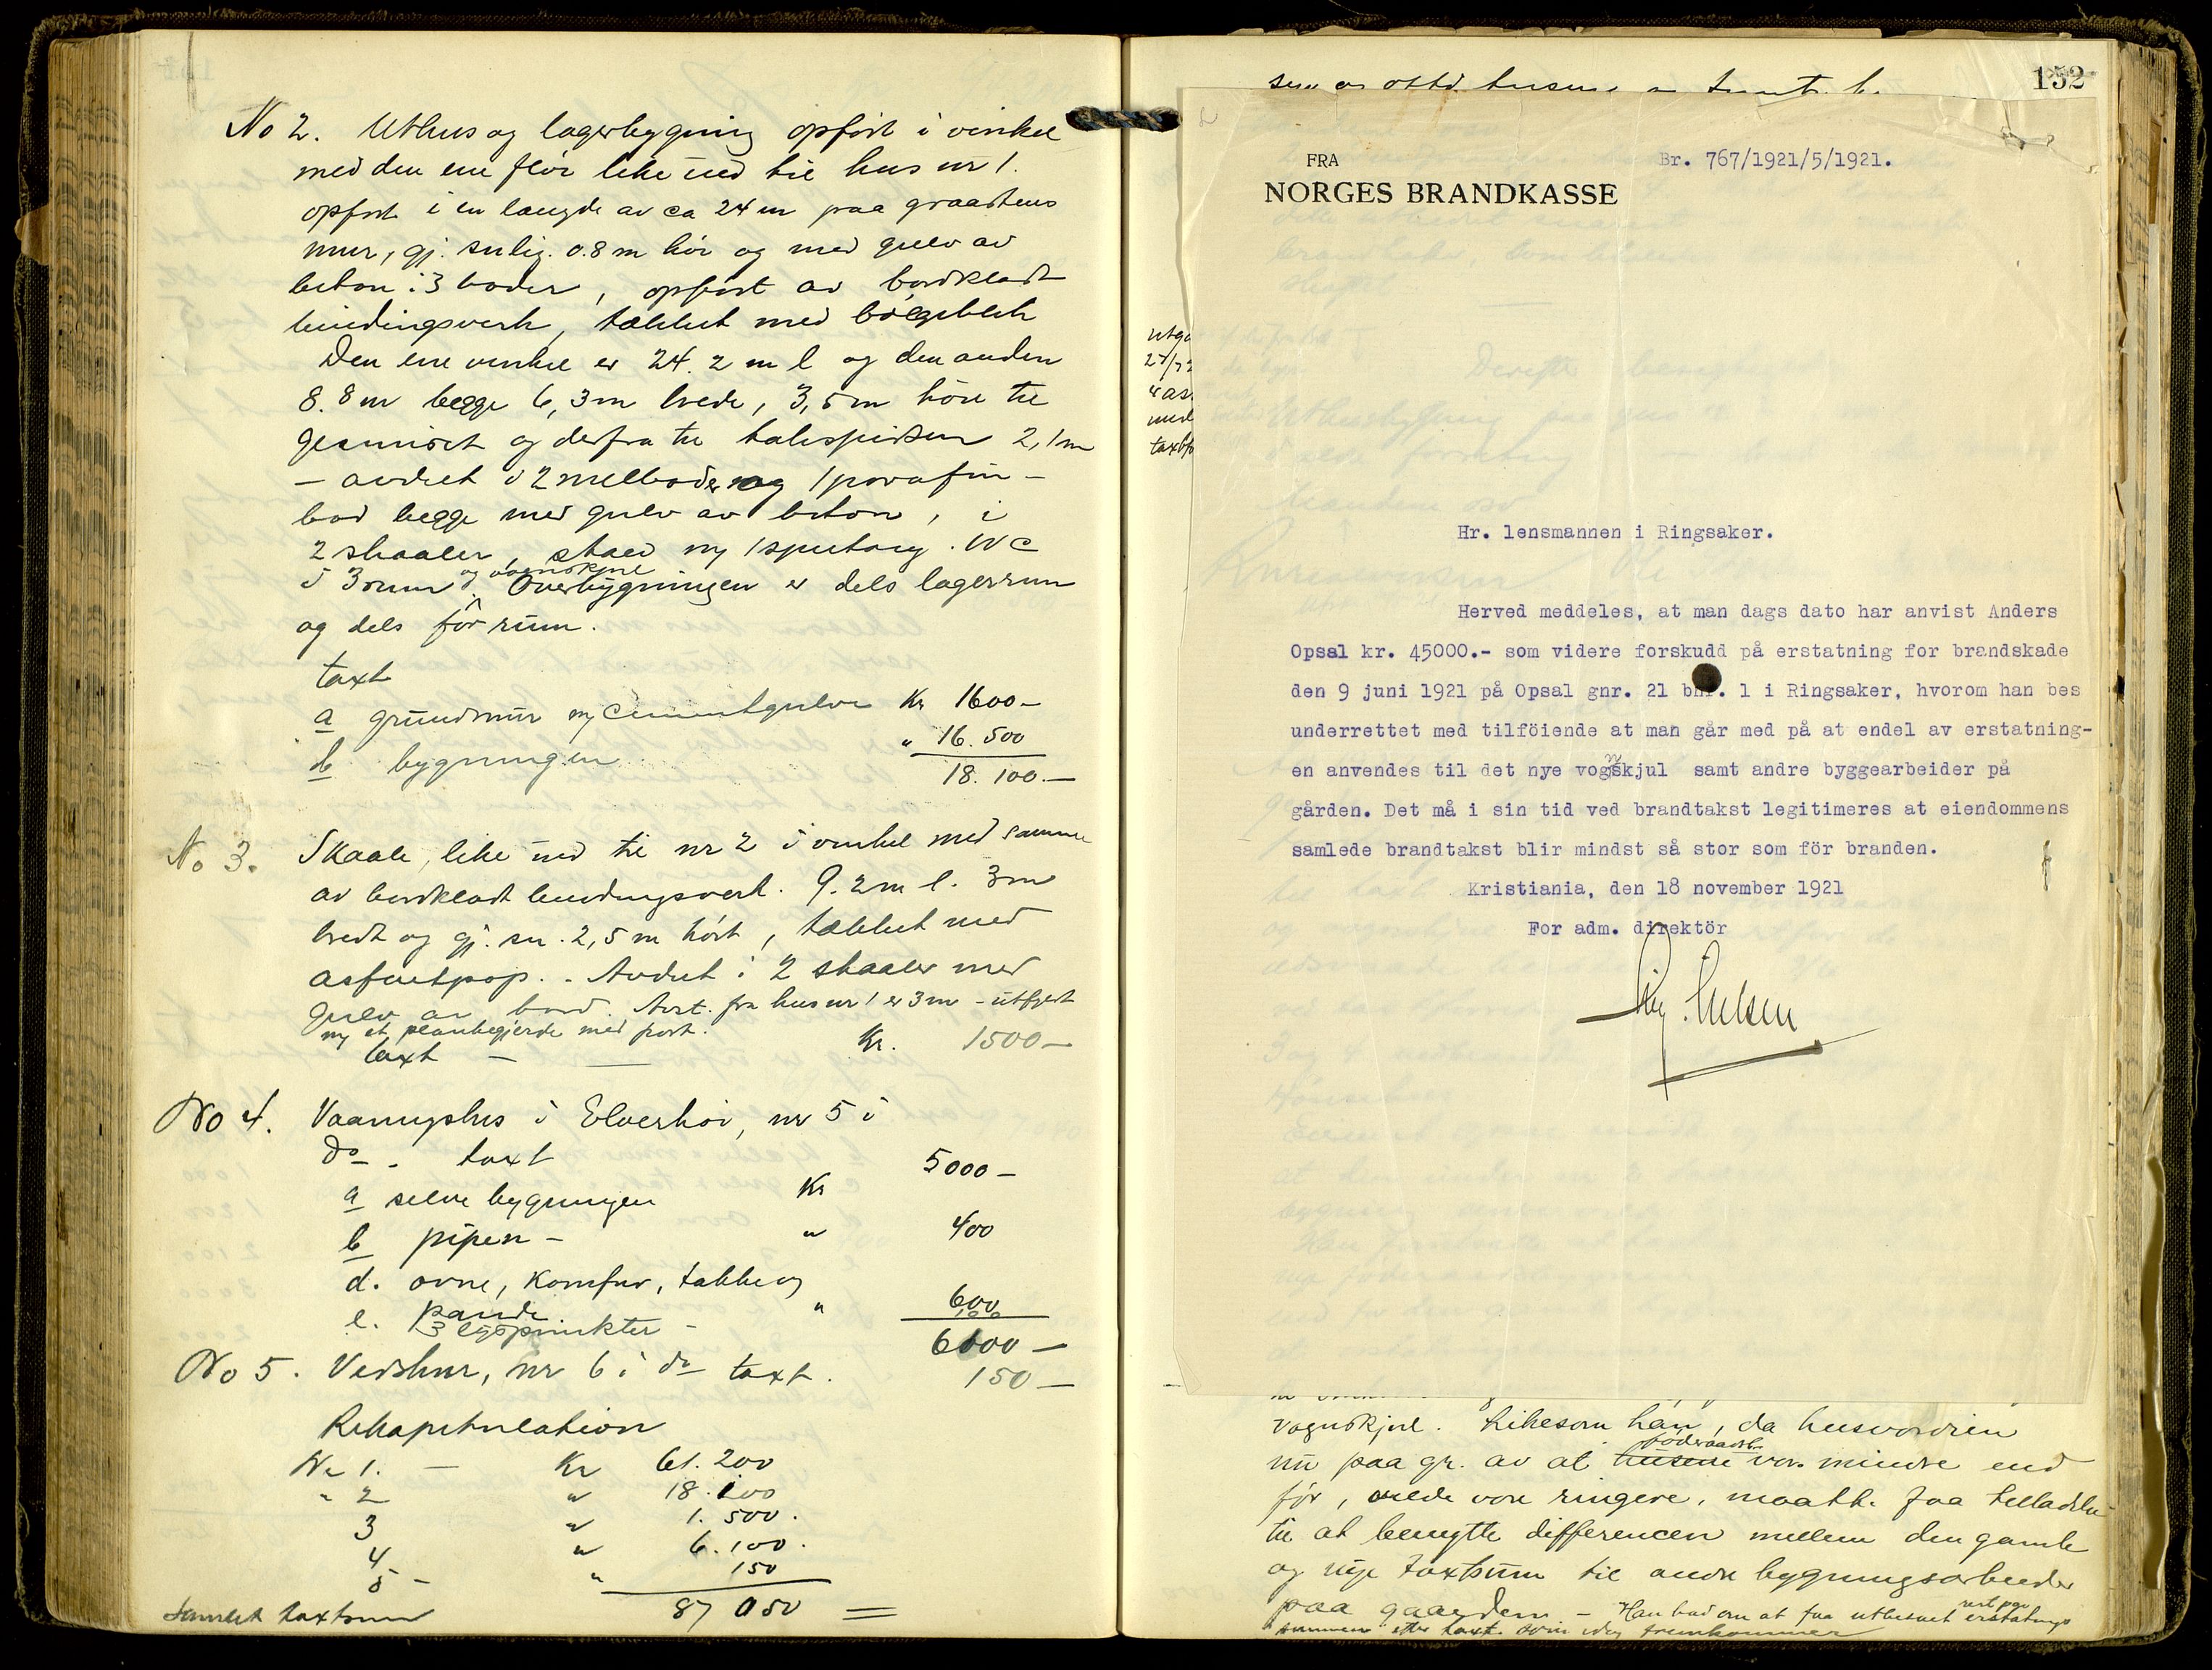 No 2. Uthus og lagerbygning opført i vinkel
med den ene fløi like ind til hus nr 1.
opført i en længde av ca 24 m paa graastens
mur, gj. snlig. 0.8 m høi og med gulv av
beton i 3 boder, opført av bordklædt
bindingsverk, tækket med bølgeblik
Den ene vinkel er 24.2 m l og den anden
8.8 m begge 6,3 m brede, 3,5 m høie til
gesimset og derfra til takspidsen 2,1 m
- indret i 2 melboder og 1 parafin-
bod begge med gulv av beton, i
2 skaaler, stald og 1 . WC
i 3 rum og vognskjul Overbygningen er dels lagerrum
og dels fôr rum.
taxt
a grundmur og cementgulve Kr 1600-
b bygningen " 16.500
18.100.-
No 3. Skaale, like ind til nr 2 i vinkel med samme
av bordklædt bindingsverk. 9.2 m l. 3 m
bredt og gj. sn. 2,5 m høit, tækket med
asfaltpap. - Indret i 2 skaaler med
gulv av bord. Avst. fra hus nr 1 er 3 m - utfyldt
og et plankegjerde med port.
taxt - Kr. 1500-
No 4. Vaaningshus i Elverhøi, nr 5 i
do - taxt
a selve bygningen Kr 5000-
b pipen - " 400
d. ovne, komfur, takke og
pande " 600
e. 3 lyspunkter - 100
6100-
No 5. Vedskur, nr 6 i do taxt. 150-
Rekapitulation
Nr 1. - Kr 61.200
" 2 " 18.100
3 " 1.500.
4 " 6.100.
5 - " 150
Samlet taxtsum 87 050
152
FRA
NORGES BRANDKASSE
Br. 767/1921/5/1921.
Hr. lensmannen i Ringsaker.
Herved meddeles, at man dags dato har anvist Anders
Opsal kr. 45000.- som videre forskudd på erstatning for brandskade
den 9 juni 1921 på Opsal gnr. 21 bnr. 1 i Ringsaker, hvorom han bes
underrettet med tilföiende at man går med på at endel av erstatning-
en anvendes til det nye vognskjul samt andre byggearbeider på
gården. Det må i sin tid ved brandtakst legitimeres at eiendommens
samlede brandtakst blir mindst så stor som för branden.
Kristiania, den 18 november 1921
For adm. direktör
vognskjul. Likesom han, da husværdien
nu paa gr. av at husene føderaadsb. var mindre end
før, vilde være ringere, maatte faa tilladelse
til at benytte differencen mellem den gamle
og nye taxtsum til andre bygningsarbeider
paa gaarden - Han bad om at faa utbetalt rest paa erstatnings
summen efter taxt som idag fremkommer